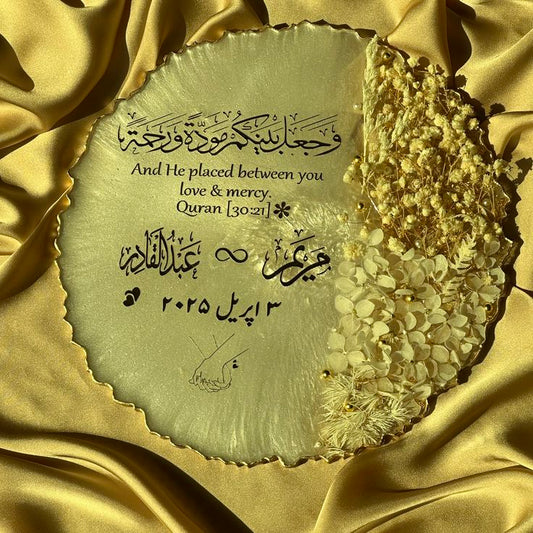 وَجَعَلَ بَيْنَكُمْ مَوَدَّةً وَرَحْمَةً
And He placed between you
love & mercy.
Quran [30:21]
مریم ∞ عبدُالقادر
۳ اپریل ۲۰۲۵